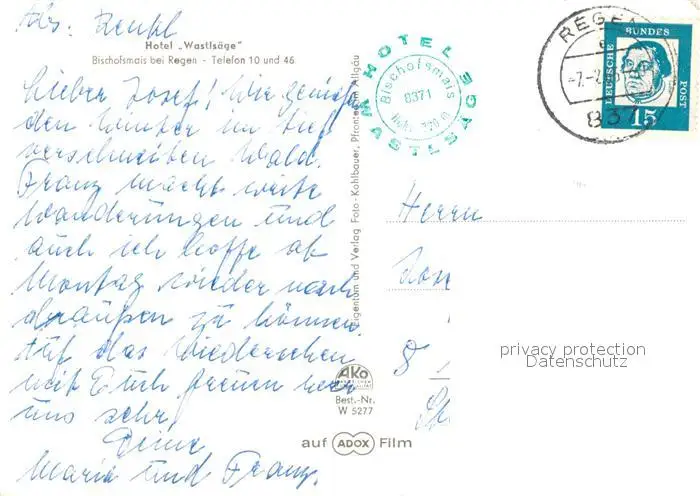 Abs: Renkl
Hotel „Wastlsäge"
Bischofsmais bei Regen - Telefon 10 und 46
Lieber Josef! Wir genießen
den Winter im tief
verschneiten Wald.
Franz macht weite
Wanderungen und
auch ich hoffe ab
Montag wieder nach
draußen zu können.
Auf das Wiedersehen
mit Euch freuen wir
uns sehr
Deine
Maria und Franz.
Eigentum und Verlag Foto-Kohlbauer, Pfronten im Allgäu
HOTEL
WASTLSÄGE
Bischofsmais
8371
AKO
Best.-Nr.
W 5277
auf ADOX Film
REGEN
837
DEUTSCHE
BUNDES
POST
15
Herrn
8
privacy protection
Datenschutz